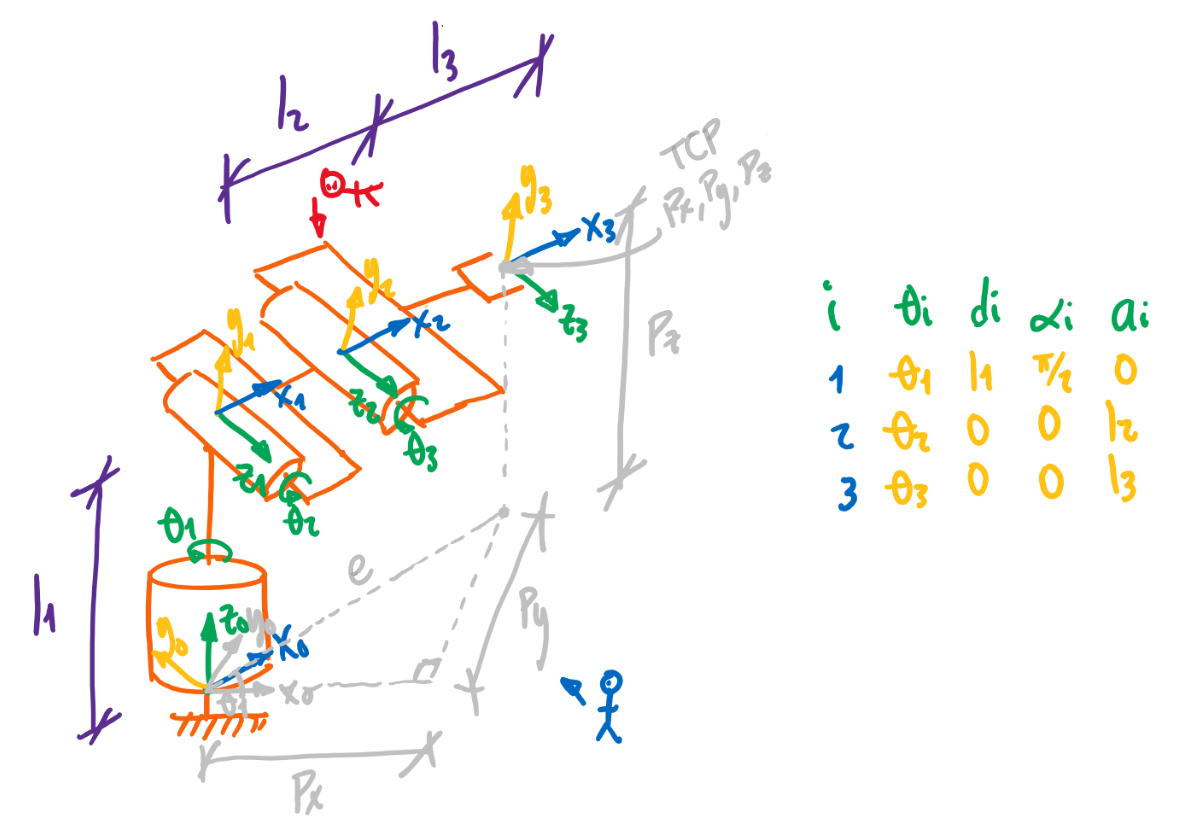 l3
l2
TCP
Px, Py, Pz
y3
x3
z3
Pz
y2
x2
z2
θ3
y1
x1
z1
θ2
θ1
l1
e
z0
y0
y0
x0
θ1
x0
Py
Px
i θi di αi ai
1 θ1 l1 π/2 0
2 θ2 0 0 l2
3 θ3 0 0 l3